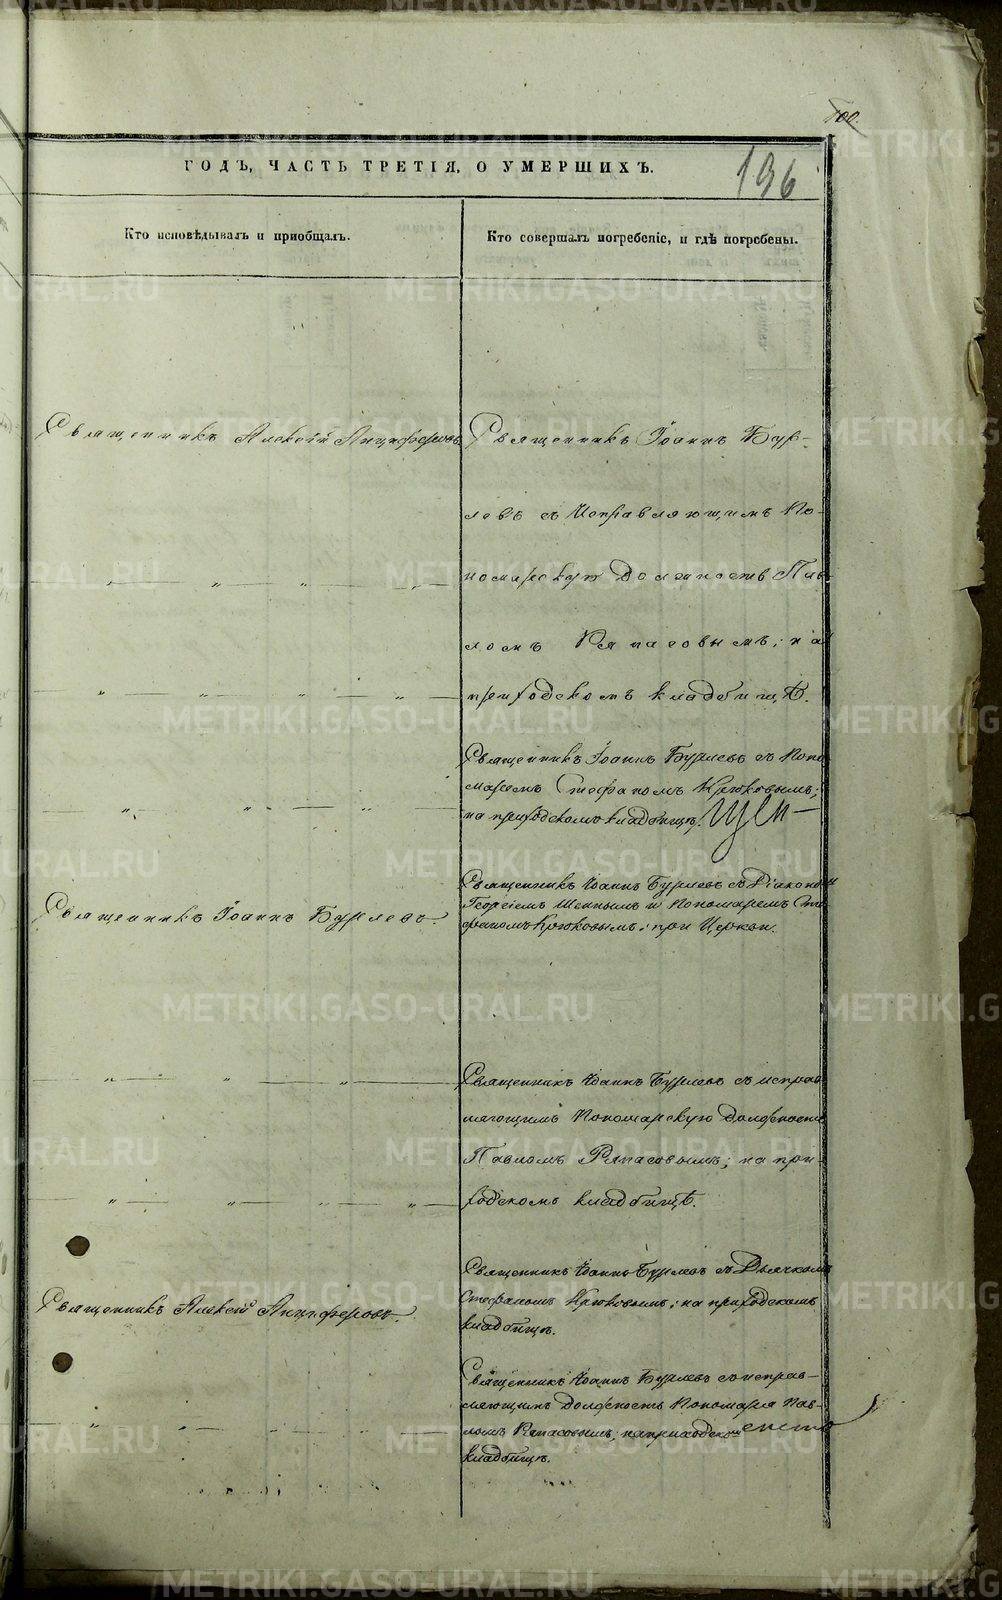 100.
196
ГОДЪ, ЧАСТЬ ТРЕТІЯ, О УМЕРШИХЪ.
Кто исповѣдывалъ и пріобщалъ.
Кто совершалъ погребеніе, и гдѣ погребены.
Священникъ Алексѣй Анциферовъ
Священникъ Іоаннъ Бур-
левъ съ Исправляющимъ По-
номарскую Должность Пав-
ломъ Ряпасовымъ; на
приходскомъ кладбищѣ.
Священникъ Іоаннъ Бурлевъ съ Поно
маремъ Стефаномъ Крюковымъ;
на приходскомъ кладбищѣ.
Священникъ Іоаннъ Бурлевъ.
Священникъ Іоаннъ Бурлевъ съ Діакономъ
Георгіемъ и Пономаремъ Сте
фаномъ Крюковымъ; при Церкви.
Священникъ Іоаннъ Бурлевъ съ исправ
ляющимъ Пономарскую Должность
Павломъ Ряпасовымъ; на при-
ходскомъ кладбищѣ.
Священникъ Алексѣй Анциферовъ.
Священникъ Іоаннъ Бурлевъ съ Дьячкомъ
Стефаномъ Крюковымъ; на приходскомъ
кладбищѣ.
Священникъ Іоаннъ Бурлевъ съ исправ-
ляющимъ Должность Пономаря Пав-
ломъ Ряпасовымъ; на приходском
кладбищѣ.
METRIKI.GASO-URAL.RU